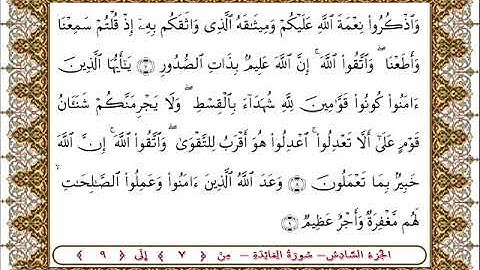 وَٱذْكُرُوا۟ نِعْمَةَ ٱللَّهِ عَلَيْكُمْ وَمِيثَٰقَهُ ٱلَّذِى وَاثَقَكُم بِهِۦٓ إِذْ قُلْتُمْ سَمِعْنَا
وَأَطَعْنَا ۖ وَٱتَّقُوا۟ ٱللَّهَ ۚ إِنَّ ٱللَّهَ عَلِيمٌۢ بِذَاتِ ٱلصُّدُورِ ٧ يَٰٓأَيُّهَا ٱلَّذِينَ
ءَامَنُوا۟ كُونُوا۟ قَوَّٰمِينَ لِلَّهِ شُهَدَآءَ بِٱلْقِسْطِ ۖ وَلَا يَجْرِمَنَّكُمْ شَنَـَٔانُ
قَوْمٍ عَلَىٰٓ أَلَّا تَعْدِلُوا۟ ۚ ٱعْدِلُوا۟ هُوَ أَقْرَبُ لِلتَّقْوَىٰ ۖ وَٱتَّقُوا۟ ٱللَّهَ ۚ إِنَّ ٱللَّهَ
خَبِيرٌۢ بِمَا تَعْمَلُونَ ٨ وَعَدَ ٱللَّهُ ٱلَّذِينَ ءَامَنُوا۟ وَعَمِلُوا۟ ٱلصَّٰلِحَٰتِ ۙ
لَهُم مَّغْفِرَةٌ وَأَجْرٌ عَظِيمٌ ٩
الجزء السادس – سورة المائدة – من ﴿ ٧ ﴾ إلى ﴿ ٩ ﴾